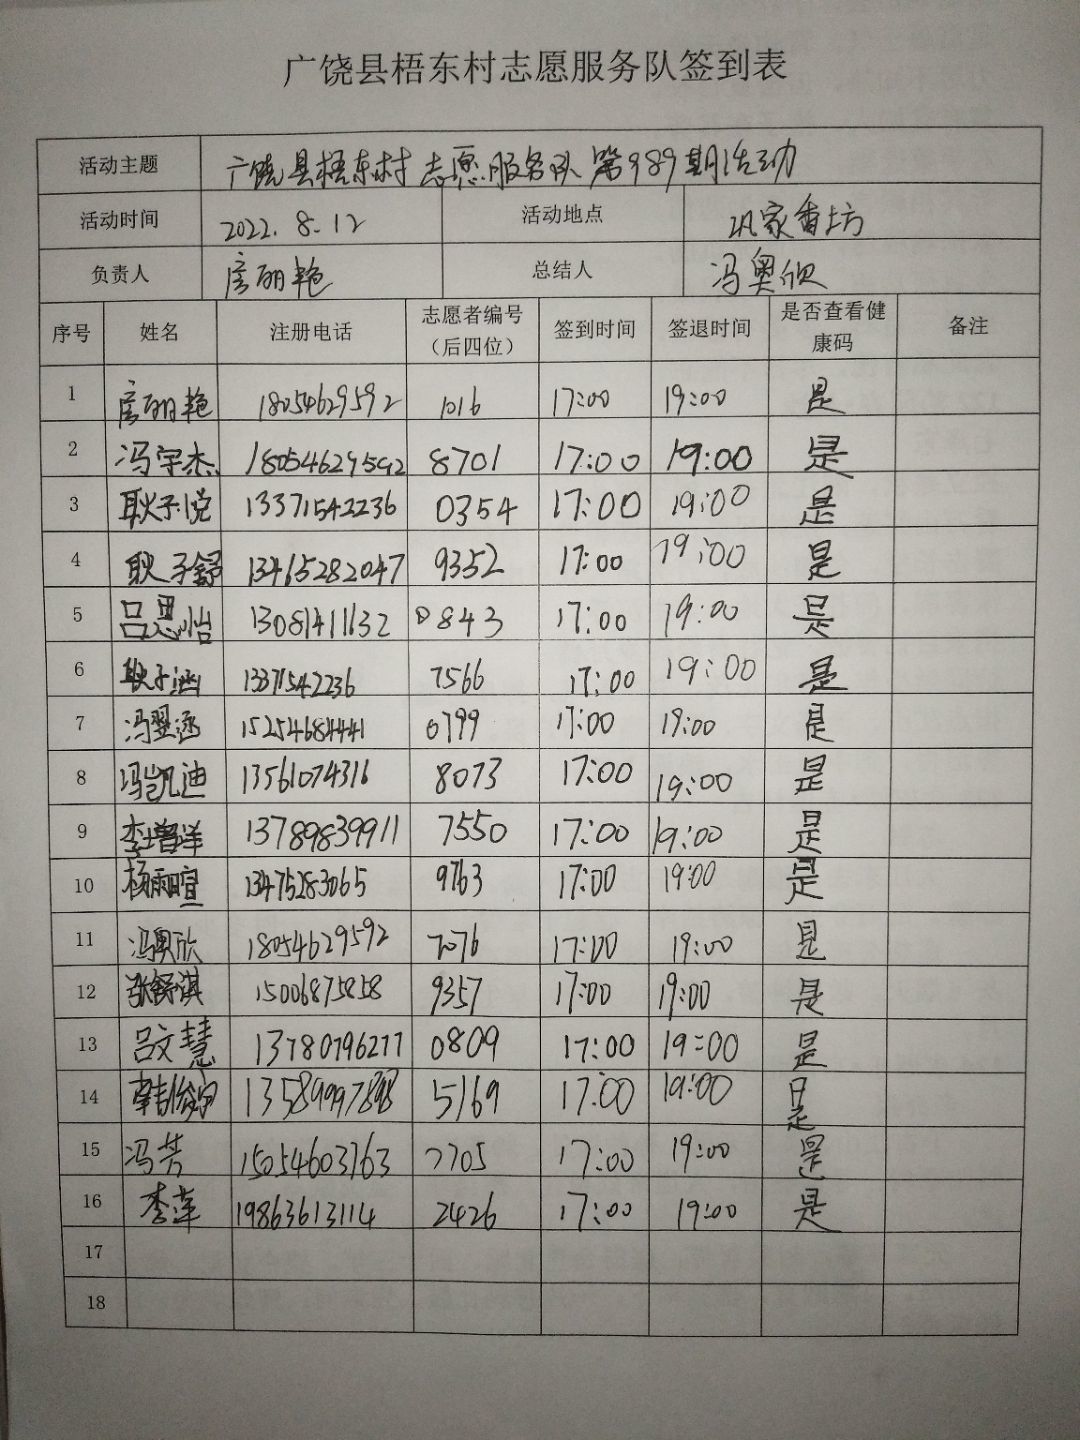 广饶县梧东村志愿服务队签到表
活动主题 广饶县梧东村志愿服务队第989期活动
活动时间 2022.8.12 活动地点 巩家香坊
负责人 房丽艳 总结人 冯奥欣
序号 姓名 注册电话 志愿者编号（后四位） 签到时间 签退时间 是否查看健康码 备注
1 房丽艳 18054629592 1016 17:00 19:00 是
2 冯宇杰 18054629592 8701 17:00 19:00 是
3 耿子悦 13371542236 0354 17:00 19:00 是
4 耿子舒 13465282047 9352 17:00 19:00 是
5 吕思怡 13081411632 0843 17:00 19:00 是
6 耿子涵 13371542236 7566 17:00 19:00 是
7 冯翌涵 15254684441 0799 17:00 19:00 是
8 冯凯迪 13561074316 8073 17:00 19:00 是
9 李增洋 13789839911 7550 17:00 19:00 是
10 杨雨暄 13475283065 9763 17:00 19:00 是
11 冯奥欣 18054629592 7076 17:00 19:00 是
12 张舒淇 15006875858 9357 17:00 19:00 是
13 吕文慧 13780796277 0809 17:00 19:00 是
14 5169 17:00 19:00 是
15 冯芳 15054603763 7705 17:00 19:00 是
16 李萍 19863613114 2426 17:00 19:00 是
17
18